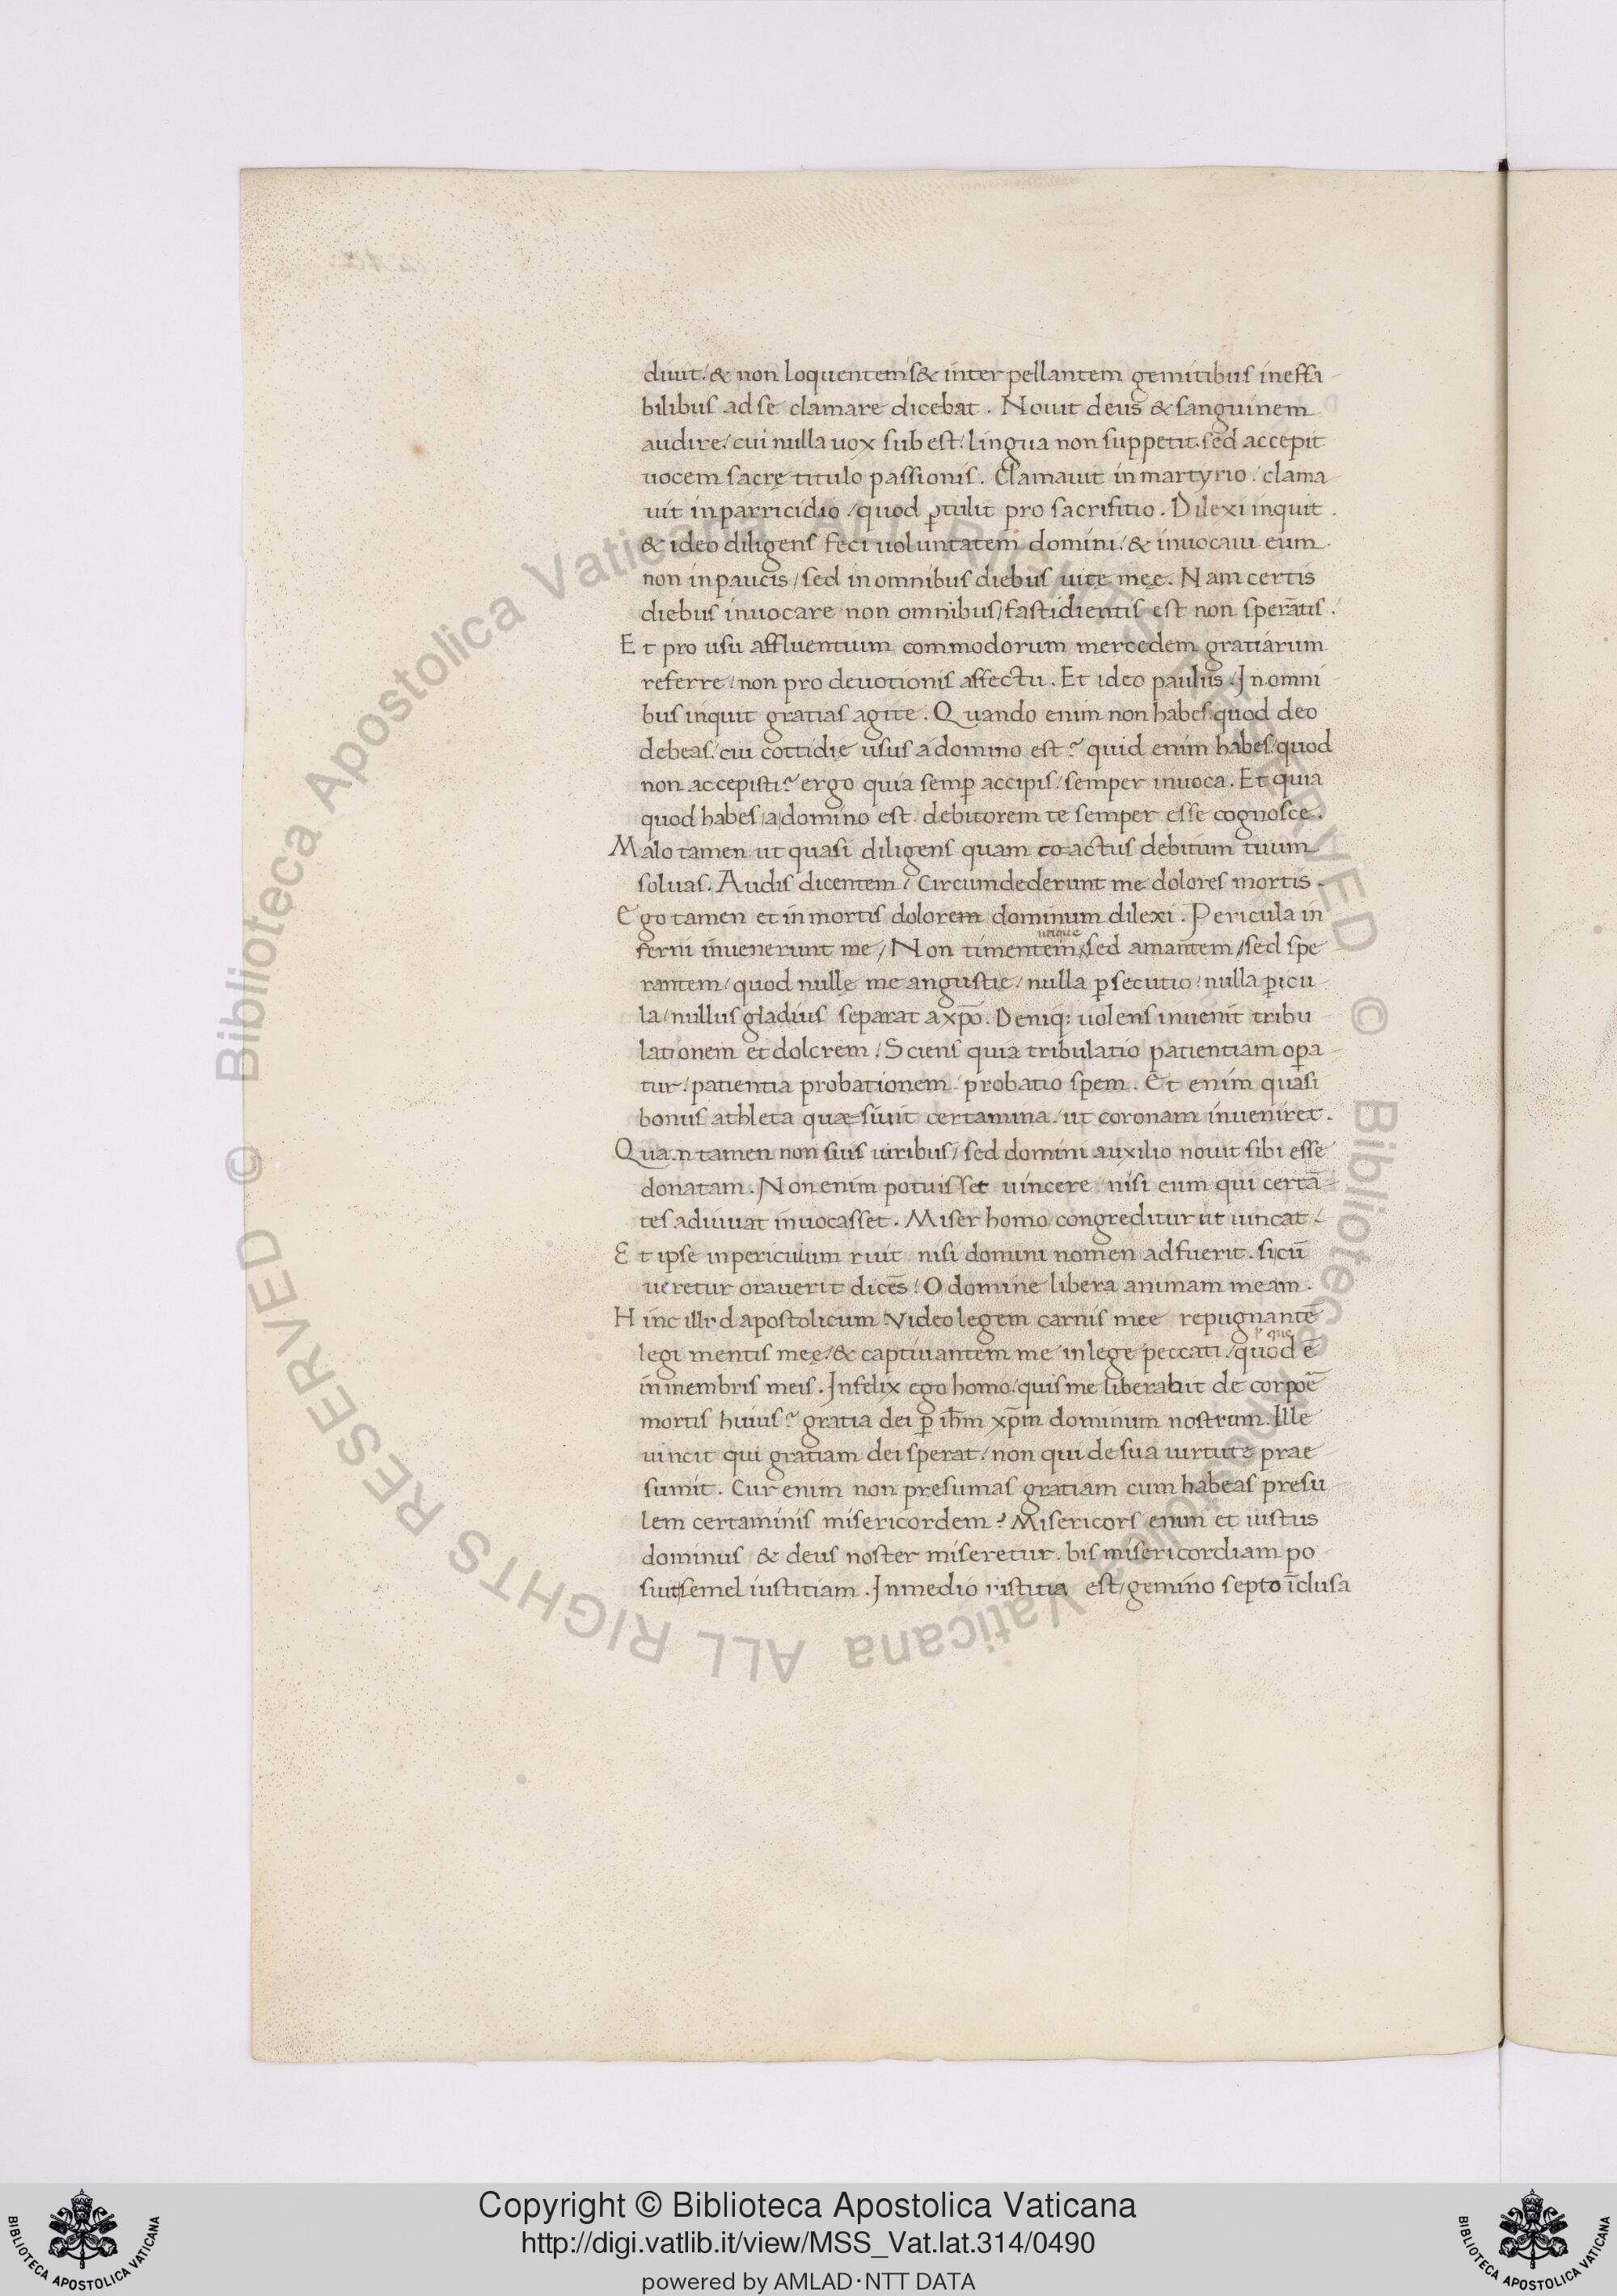 diuit / & non loquentem s& inter pellantem gemitibus ineffa-
bilibus ad se clamare dicebat . Nouit deus & sanguinem
audire / cui nulla uox sub est / lingua non suppetit . sed accepit
uocem sacrę titulo passionis . Clamauit in martyrio / clama-
uit in parricidio / quod ꝑtulit pro sacrifitio . Dilexi inquit .
& ideo diligens feci uoluntatem domini / & inuocaui eum .
non in paucis / sed in omnibus diebus uitę męę . Nam certis
diebus inuocare non omnibus / fastidientis est non sperātis .
Et pro usu affluentium commodorum mercedem gratiarum
referre / non pro deuotionis affectu . Et ideo paulus . In omni
bus inquit gratias agite . Quando enim non habes quod deo
debeas / cui cottidie usus a domino est ? quid enim habes / quod
non accepisti ? ergo quia semꝑ accipis / semper inuoca . Et quia
quod habes a domino est . debitorem te semper esse cognosce .
Malo tamen ut quasi diligens quam coactus debitum tuum
soluas . Audis dicentem / Circumdederunt me dolores mortis .
Ego tamen et in mortis dolorem dominum dilexi . Pericula in
utique
ferni inuenerunt me / Non timentem / sed amantem / sed spe
rantem / quod nullę me angustię / nulla ꝑsecutio / nulla ꝑicu-
la / nullus gladius separat a xp̄o . Deniq; uolens inuenit tribu-
lationem et dolorem / Sciens quia tribulatio patientiam oꝑa-
tur / patientia probationem / probatio spem . Et enim quasi
bonus athleta quæsiuit certamina / ut coronam inueniret .
Quam tamen non suis uiribus / sed domini auxilio nouit sibi esse
donatam . Non enim potuisset uincere / nisi eum qui certā-
tes adiuuat inuocasset . Miser homo congreditur ut uincat /
Et ipse in periculum ruit nisi domini nomen adfuerit . si cū
ueretur orauerit dicēs / O domine libera animam meam .
Hinc illud apostolicum Video legem carnis mee repugnantē
legi mentis męę / & captiuantem me in lege peccati / quod ē
in membris meis . Infelix ego homo / quis me liberabit de corpoē
mortis huius ? gratia dei ꝑ ih̄m xp̄m dominum nostrum . Ille
uincit qui gratiam dei sperat / non qui de sua uirtute prae
sumit . Cur enim non presumas gratiam cum habeas presu
lem certaminis misericordem ? Misericors enim et iustus
dominus & deus noster miseretur . bis misericordiam po
suit semel iustitiam . In medio iustitia est / gemino septo īclusa
Copyright © Biblioteca Apostolica Vaticana
http://digi.vatlib.it/view/MSS_Vat.lat.314/0490
powered by AMLAD·NTT DATA
© Biblioteca Apostolica Vaticana ALL RIGHTS RESERVED
© Biblioteca Apostolica Vaticana ALL RIGHTS RESERVED
BIBLIOTECA APOSTOLICA VATICANA
BIBLIOTECA APOSTOLICA VATICANA